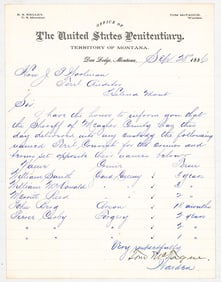 R. S. KELLEY,
U. S. MARSHAL.
TOM McTAGUE,
WARDEN.
OFFICE OF
The United States Penitentiary,
TERRITORY OF MONTANA.
Deer Lodge, Montana, Sept 28 1886
Hon J P Woolman
Ter't Auditor
Helena Mont
Sir
I have the honor to inform you that
the Sheriff of Meagher County has this
day delivered into my custody the following
named Ter't Convicts for the crimes and
terms set opposite their names below
Name Crime Term
William Smith Grand Larceny 3 years
William McDonald " " 3 "
Merritt Reed " " 2 "
John Arson 18 months
Pierce Perjury 2 years
" " "
" " "
Very respectfully
Tom McTague
Warden